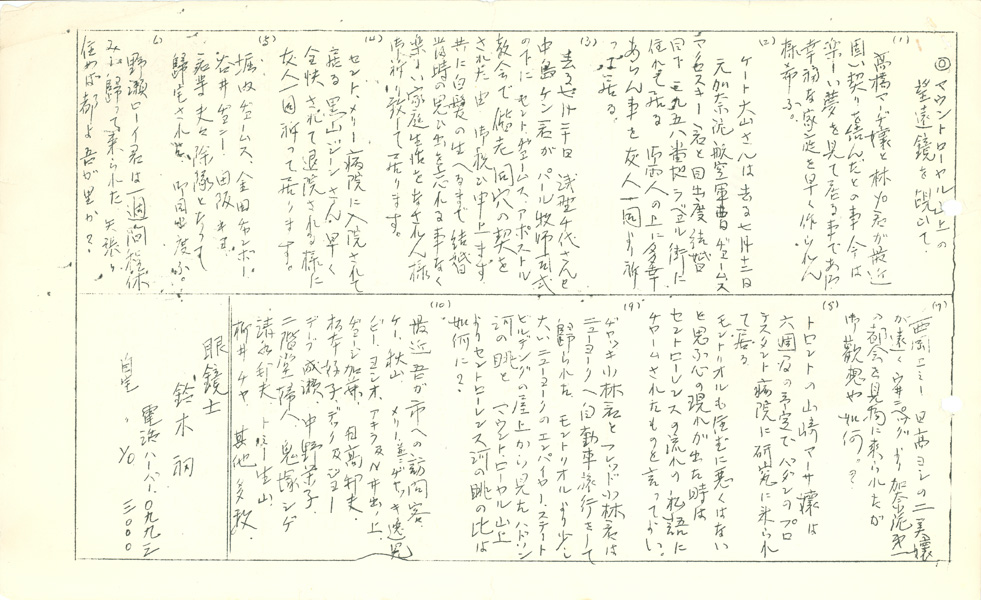 ◎マウントローヤル山上の
望遠鏡を覗いて、
(1)
高橋マ 嬢と林 君が最近
固い契りを結んだとの事今は
楽しい夢を見て居る事であらう
幸福な家庭を早く作られん
様希ふ。
(2)
ケート大山さんは去る七月十二日
元加奈陀航空軍曹ゼームス
君と目出度く結婚
目下三九五八番地ラバル街に
住れて居る 両人の上に多幸
あらん事を友人一同より祈
つて居る。
(3)
去る 二十日 浅 千代さんと
中島ケン君がパール牧師司式
の下にセントゼームス、アポストル
教会で偕老同穴の契を
された由 御祝び申上ます
共に白髪の生へるまで結婚
当時の思ひ出を忘れる事なく
楽しい家庭生活をなされん様
御祈り致して居ります。
(4)
セント、メリー病院に入院されて
居る黒山ジーンさん早く
全快されて退院される様に
友人一同祈って居ります。
(5)
堀内ゼームス、金田
谷井 田阪
君等夫々除隊となりて
帰宅された 御目出度ふ。
(6)
野瀬ローイ君は一週間程休
みに帰って来られた 矢張り
住めば都よ吾が里か？
(7)
西岡エミー 日高ヨシの二美嬢
が遠くウ井ニペッグより加奈陀第
一の都会を見物に来られたが
御感想や如何？
(8)
トロントの山崎アーサ嬢は
六週間の予定で のプロ
テスタント病院に研究に来られ
て居る
モントリオルも住むに悪くはない
と思ふ心の現れが出た時は
セントローレンスの流れの私語に
チャームされたものと言ってよい。
(9)
ヂャッキ小林君とフレッド小林君は
ニューヨークへ自動車旅行をして
帰られた モントリオルより少し
大いニューヨークのエンパイロー、ステート
ビルデングの屋上から見たハドソン
河の眺と マウント、ローヤル山上
よりセントローレンス河の眺の比は
如何に？
(10)
最近吾が市への訪問客
ケー、秋山 メリー
ビー、ヨシオ、アキラ及 井出上
ヂョージ加藤 日高邦夫
松本 子
デ 成瀬 中野栄子
二階堂婦人 鬼塚シゲ
清水邦夫 トミー生山
新井 其他多数
眼鏡士
鈴木
電話ハーバー、〇九九三
自宅 〃 三〇〇〇